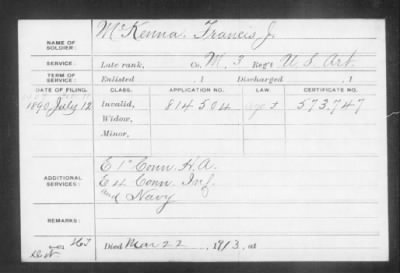 McKenna, Francis, J.
NAME OF SOLDIER:
SERVICE: Late rank, Co. M, 3 Reg't U.S. Art.
TERM OF SERVICE: Enlisted , 1 Discharged , 1
DATE OF FILING. CLASS. APPLICATION NO. LAW. CERTIFICATE NO.
1890 July 12 Invalid, 814504 573.747
Widow,
Minor,
ADDITIONAL SERVICES: E 1" Conn. H.A.
E 4 Conn. Inf.
and Navy
REMARKS:
Died Mar 22 1913, at